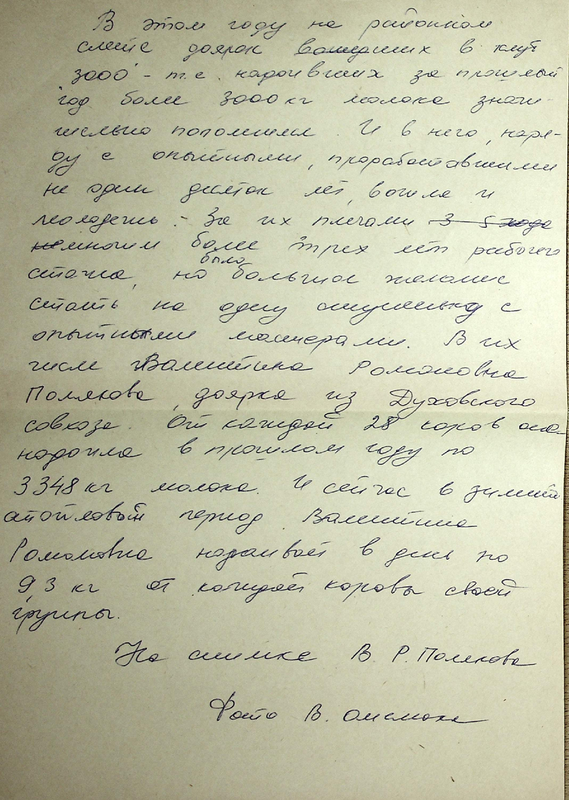 В этом году на районном
слете доярок вошедших в клуб
3000 - т.е. надоивших за прошлый
год более 3000 кг молока значи-
тельно пополнился. И в него, наря-
ду с опытными, проработавшими
не один десяток лет, вошла и
молодежь. За их плечами 3 5 года
немногим более трех лет рабочего
было
стажа, но большое желание
стать на одну ступеньку с
опытными мастерами. В их
числе Валентина Романовна
Полякова, доярка из Духовского
совхоза. От каждой 28 коров она
надоила в прошлом году по
3348 кг молока. И сейчас в зимний
стойловый период Валентина
Романовна надаивает в день по
9,3 кг от каждой коровы своей
группы.
На снимке В. Р. Полякова
Фото В.